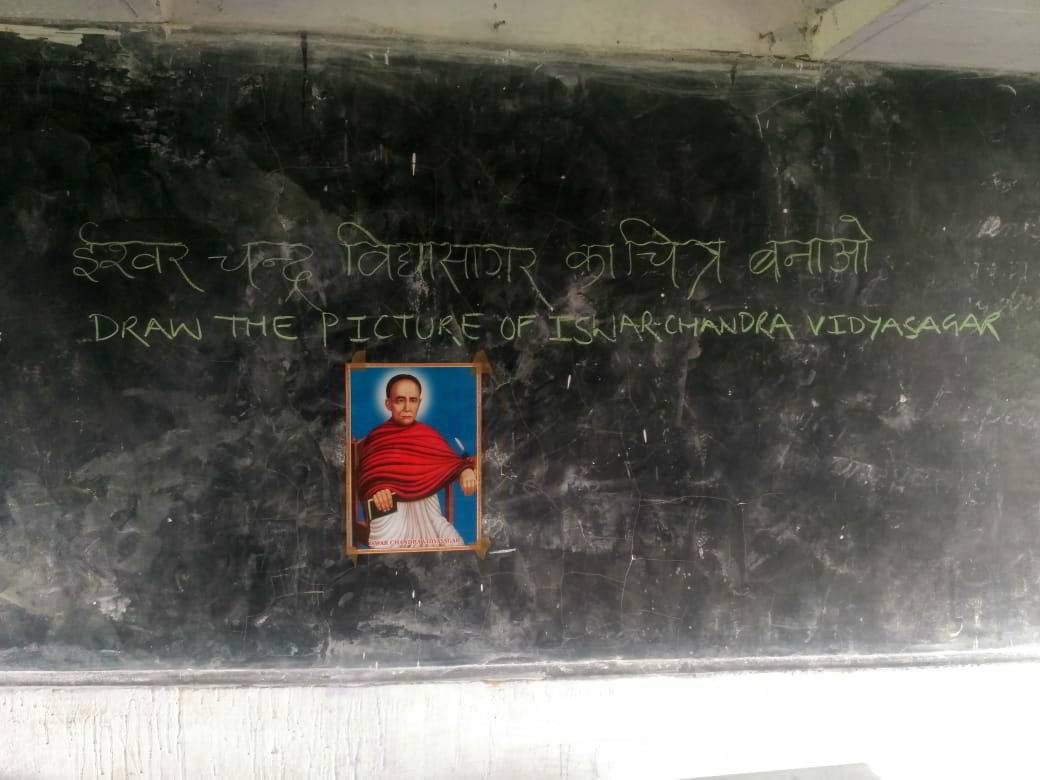 ईश्वर चन्द्र विद्यासागर का चित्र बनाओ
DRAW THE PICTURE OF ISWAR CHANDRA VIDYASAGAR
ISWAR CHANDRA VIDYASAGAR